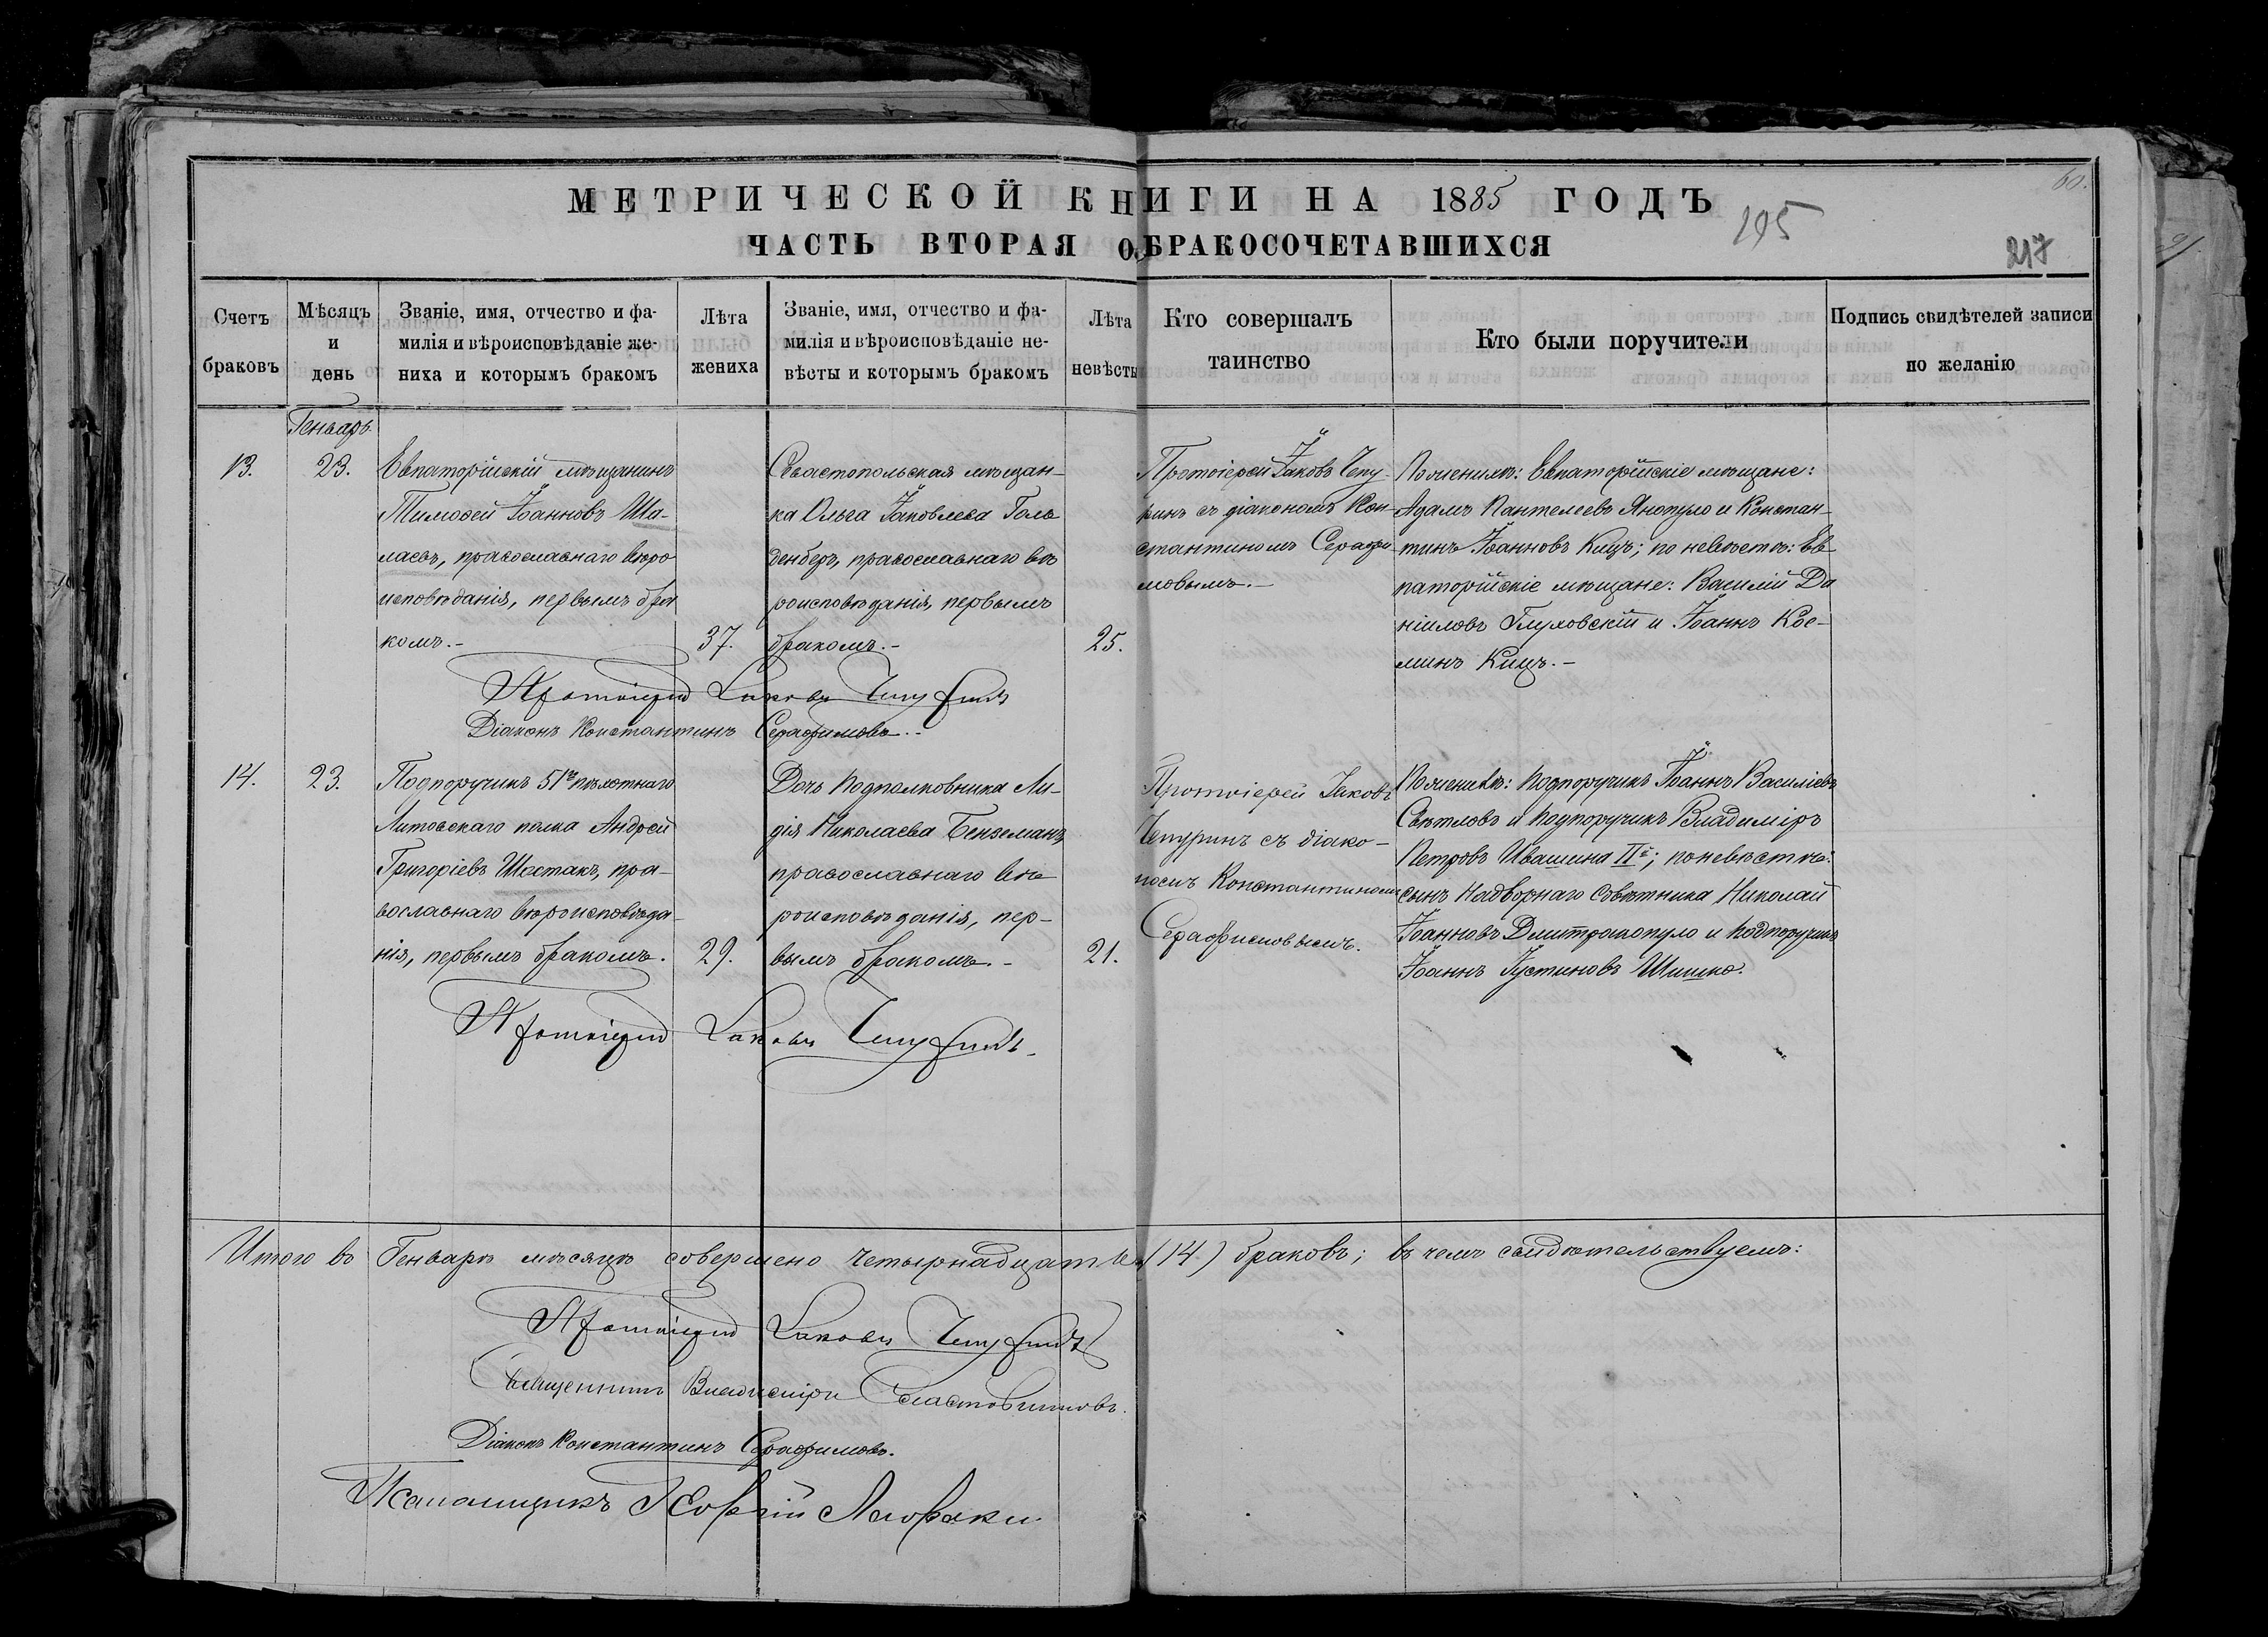 МЕТРИЧЕСКОЙ КНИГИ НА 1885 ГОДЪ
60.
195
ЧАСТЬ ВТОРАЯ О БРАКОСОЧЕТАВШИХСЯ
217
Счетъ
браковъ
Мѣсяцъ
и
день
Званіе, имя, отчество и фа-
милія и вѣроисповѣданіе же-
ниха и которымъ бракомъ
Лѣта
жениха
Званіе, имя, отчество и фа-
милія и вѣроисповѣданіе не-
вѣсты и которымъ бракомъ
Лѣта
невѣсты
Кто совершалъ
таинство
Кто были поручители
Подпись свидѣтелей записи
по желанію
Генварь
13.
23.
Евпаторійскій мѣщанинъ
Тимоѳей Іоанновъ Ша-
лаевъ, православнаго вѣро
исповѣданія, первымъ бра
комъ.-
37.
Севастопольская мѣщан-
ка Ольга Іаковлева Голь
денберъ, православнаго вѣ
роисповѣданія, первымъ
бракомъ.-
25.
Протоіерей Іаковъ Чепу-
ринъ съ діакономъ Кон-
стантиномъ Серафи-
мовымъ.-
По женихѣ: Евпаторійскіе мѣщане:
Адамъ Пантелеевъ Янопуло и Констан-
тинъ Іоанновъ Кицъ; по невѣстѣ: Ев-
паторійскіе мѣщане: Василій Да
ніиловъ Глуховскій и Іоаннъ Кос-
минъ Кицъ.-
Протоіерей Іаковъ Чепуринъ
Діаконъ Константинъ Серафимовъ.-
14.
23.
Подпоручикъ 51го пѣхотнаго
Литовскаго полка Андрей
Григоріевъ Шестакъ, пра-
вославнаго вѣроисповѣда-
нія, первымъ бракомъ.
29.
Дочь Подполковника Ли-
дія Николаева Бенземанъ,
православнаго вѣ
роисповѣданія, пер-
вымъ бракомъ.-
21.
Протоіерей Іаковъ
Чепуринъ съ діако-
номъ Константиномъ
Серафимовымъ.
По женихѣ: Подпоручикъ Іоаннъ Василіевъ
Свѣтловъ и Подпоручикъ Владиміръ
Петровъ Ивашина IIй; по невѣстѣ:
сынъ Надворнаго Совѣтника Николай
Іоанновъ Дмитракопуло и Подпоручикъ
Іоаннъ Іустиновъ Шишко.
Протоіерей Іаковъ Чепуринъ.
Итого въ Генварѣ мѣсяцѣ совершено четырнадцать (14.) браковъ; въ чемъ свидѣтельствуемъ:
Протоіерей Іаковъ Чепуринъ
Священникъ Владиміръ
Діаконъ Константинъ Серафимовъ.
Псаломщикъ Георгій